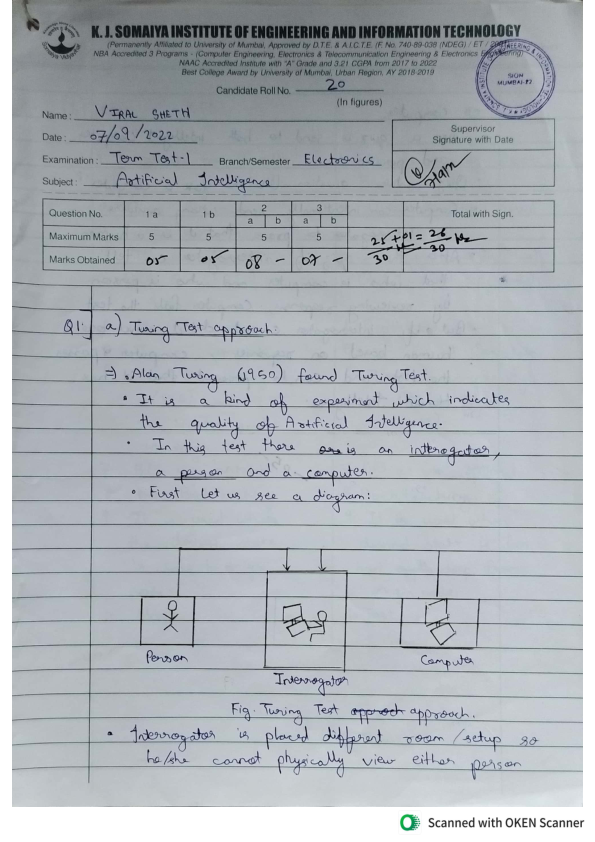 K. J. SOMAIYA INSTITUTE OF ENGINEERING AND INFORMATION TECHNOLOGY
(Permanently Affiliated to University of Mumbai, Approved by D.T.E. & A.I.C.T.E. (F. No. 740-89-038 (NDEG) / ET /
NBA Accredited 3 Programs - (Computer Engineering, Electronics & Telecommunication Engineering & Electronics Engineering)
NAAC Accredited Institute with "A" Grade and 3.21 CGPA from 2017 to 2022
Best College Award by University of Mumbai, Urban Region, AY 2018-2019
SION
MUMBAI-22
Candidate Roll No. 20
(In figures)
Name: VIRAL SHETH
Date: 07/09/2022
Supervisor
Signature with Date
Examination: Term Test-1 Branch/Semester Electronics
Subject: Artificial Intelligence
Question No. 1 a 1 b 2 a b 3 a b Total with Sign.
Maximum Marks 5 5 5 5 25/30 + 01 = 26/30
Marks Obtained 05 05 08 - 07 -
Q1] a) Turing Test approach:
⇒ • Alan Turing (1950) found Turing Test.
• It is a kind of experiment which indicates
the quality of Artificial Intelligence.
• In this test there are is an interrogator,
a person and a computer.
• First let us see a diagram:
Person
Interrogator
Computer
Fig. Turing Test approct approach.
• Interrogator is placed different room/setup so
he/she cannot physically view either person
Scanned with OKEN Scanner